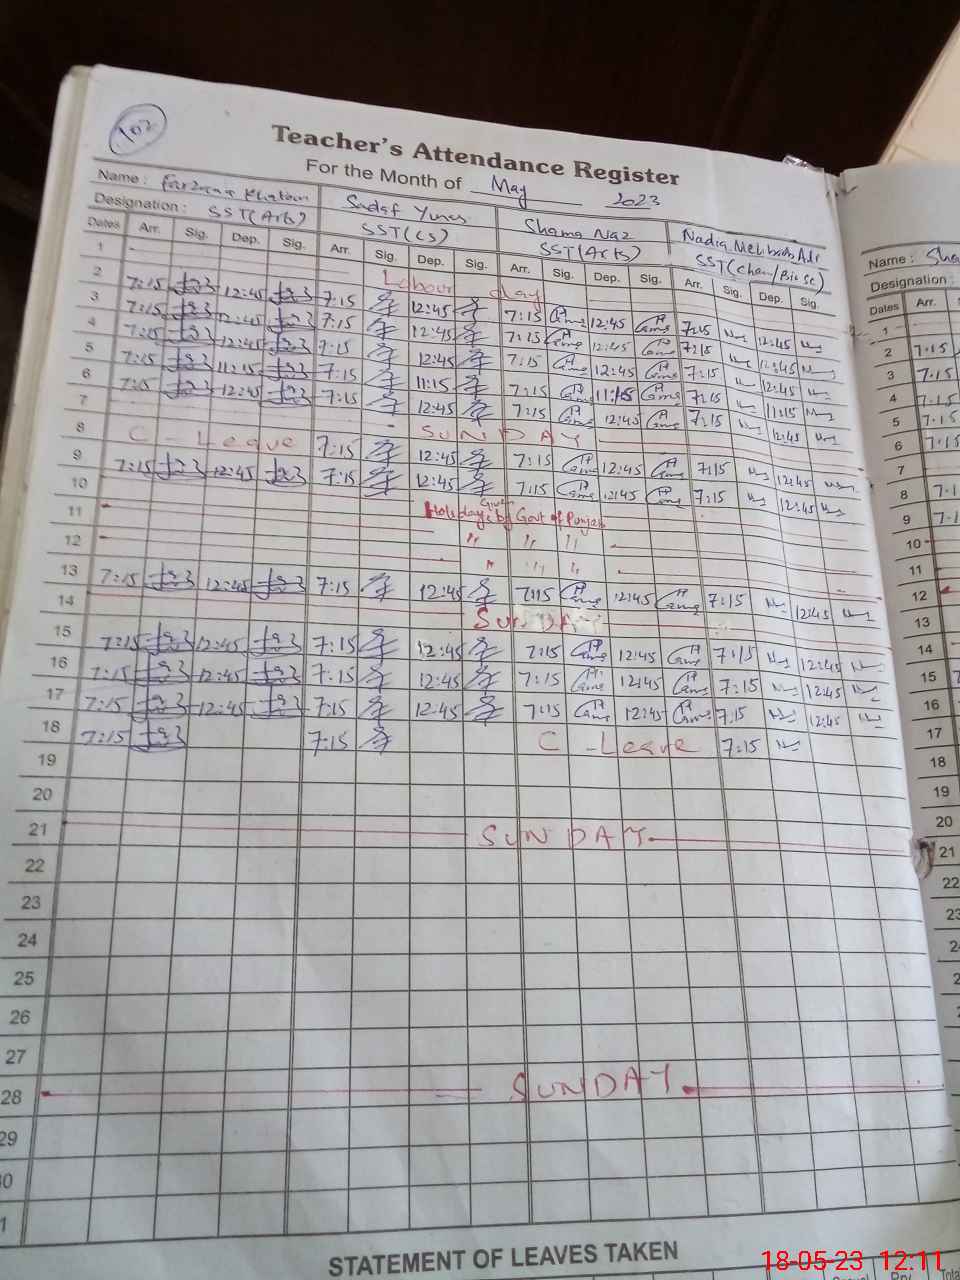 102
Teacher's Attendance Register
For the Month of May 2023
Name : Farzana Khatoon Sadaf Yunes Shama Naz Nadia Mehboob
Designation : SST(Arts) SST(CS) SST(Arts) SST(Chem/Bio Sc)
Dates Arr. Sig. Dep. Sig. Arr. Sig. Dep. Sig. Arr. Sig. Dep. Sig. Arr. Sig. Dep. Sig.
1 Labour day
2 7:15 12:45 7:15 12:45 7:15 12:45 7:15 12:45
3 7:15 12:45 7:15 12:45 7:15 12:45 7:15 12:45
4 7:15 12:45 7:15 12:45 7:15 12:45 7:15 12:45
5 7:15 11:15 7:15 11:15 7:15 11:15 7:15 11:15
6 7:15 12:45 7:15 12:45 7:15 12:45 7:15 12:45
7 SUNDAY
8 C - Leave 7:15 12:45 7:15 12:45 7:15 12:45
9 7:15 12:45 7:15 12:45 7:15 12:45 7:15 12:45
10 Holidays given by Govt of Punjab
11 " " "
12 " " "
13 7:15 12:45 7:15 12:45 7:15 12:45 7:15 12:45
14 SUNDAY
15 7:15 12:45 7:15 12:45 7:15 12:45 7:15 12:45
16 7:15 12:45 7:15 12:45 7:15 12:45 7:15 12:45
17 7:15 12:45 7:15 12:45 7:15 12:45 7:15 12:45
18 7:15 7:15 C - Leave 7:15
19
20
21 SUNDAY
22
23
24
25
26
27
28 SUNDAY
29
30
STATEMENT OF LEAVES TAKEN
Name : Sha
Designation :
Dates Arr.
1
2 7:15
3 7:15
4 7:15
5 7:15
6 7:15
7
8 7:1
9 7:1
10
11
12
13
14
15
16
17
18
19
20
21
22
23
18-05-23 12:11